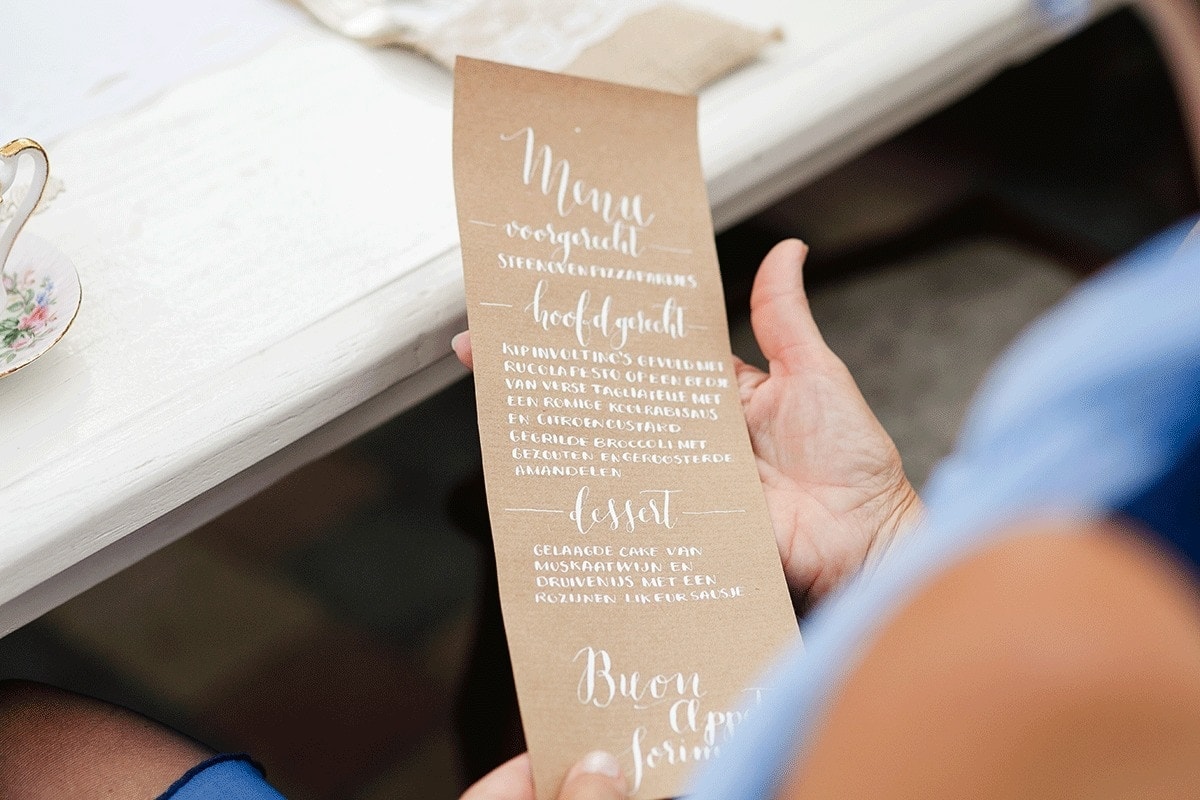 Menu
voorgerecht
STEENOVENPIZZAPARTJES
hoofdgerecht
KIPINVOLTINO'S GEVULD MET
RUCOLAPESTO OP EEN BEDJE
VAN VERSE TAGLIATELLE MET
EEN ROMIGE KOOLRABISAUS
EN CITROENCUSTARD
GEGRILDE BROCCOLI MET
GEZOUTEN EN GEROOSTERDE
AMANDELEN
dessert
GELAAGDE CAKE VAN
MUSKAATWIJN EN
DRUIVENIJS MET EEN
ROZIJNEN LIKEURSAUSJE
Buon